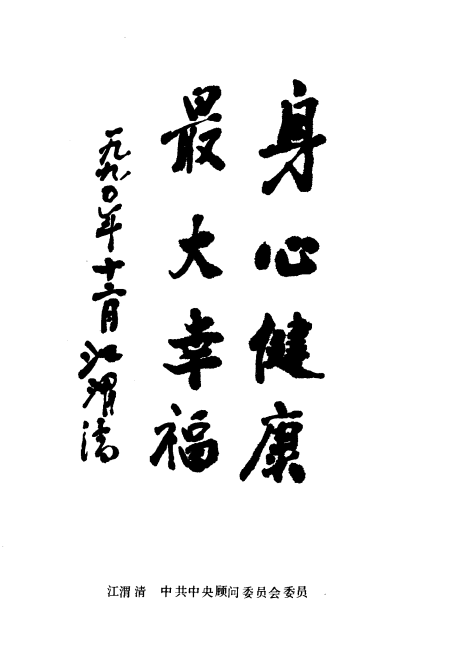 身心健康
最大幸福
一九九〇年十二月江渭清
江渭清 中共中央顾问委员会委员